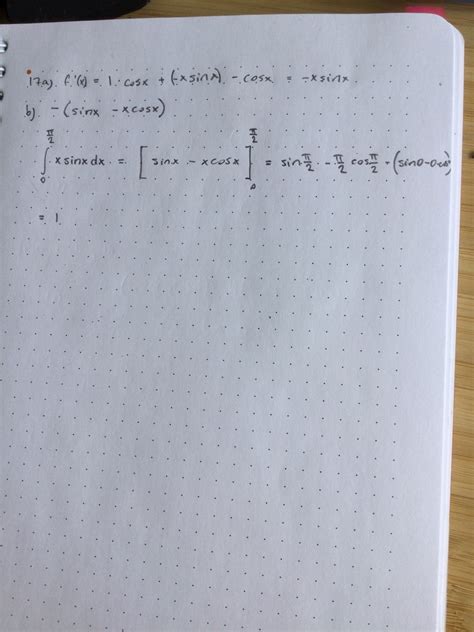 17a). f'(x) = 1·cosx + (-xsinx) - cosx = -xsinx
b). -(sinx - xcosx)
∫₀^{π/2} x sinx dx = [sinx - xcosx]₀^{π/2} = sin π/2 - π/2 cos π/2 - (sin0 - 0
= 1